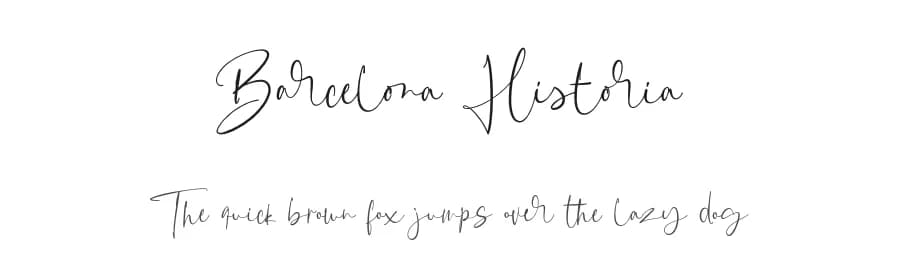 Barcelona Historia
The quick brown fox jumps over the lazy dog